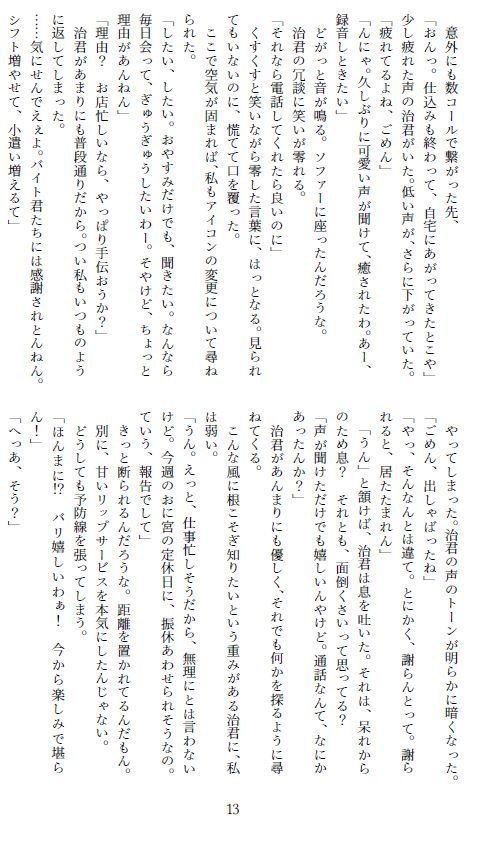 意外にも数コールで繋がった先、
「おんっ。仕込みも終わって、自宅にあがってきたとこや」
少し疲れた声の治君がいた。低い声が、さらに下がっていた。
「疲れてるよね、ごめん」
「んにゃ。久しぶりに可愛い声が聞けて、癒されたわ。あー、
録音しときたい」
どがっと音が鳴る。ソファーに座ったんだろうな。
治君の冗談に笑いが零れる。
「それなら電話してくれたら良いのに」
くすくすと笑いながら零した言葉に、はっとなる。見られ
てもいないのに、慌てて口を覆った。
ここで空気が固まれば、私もアイコンの変更について尋ね
られた。
「したい、したい。おやすみだけでも、聞きたい。なんなら
毎日会って、ぎゅうぎゅうしたいわー。そやけど、ちょっと
理由があんねん」
「理由？　お店忙しいなら、やっぱり手伝おうか？」
治君があまりにも普段通りだから。つい私もいつものよう
に返してしまった。
「……気にせんでえぇよ。バイト君たちには感謝されとんねん。
シフト増やせて、小遣い増えるて」
やってしまった。治君の声のトーンが明らかに暗くなった。
「ごめん、出しゃばったね」
「やっ、そんなんとは違て。とにかく、謝らんとって。謝ら
れると、居たたまれん」
「うん」と頷けば、治君は息を吐いた。それは、呆れから
のため息？　それとも、面倒くさいって思ってる？
「声が聞けただけでも嬉しいんやけど。通話なんて、なにか
あったんか？」
治君があんまりにも優しく、それでも何かを探るように尋
ねてくる。
こんな風に根こそぎ知りたいという重みがある治君に、私
は弱い。
「うん。えっと、仕事忙しそうだから、無理にとは言わない
けど。今週のおに宮の定休日に、振休あわせられそうなの。
ていう、報告でして」
きっと断られるんだろうな。距離を置かれてるんだもん。
別に、甘いリップサービスを本気にしたんじゃない。
どうしても予防線を張ってしまう。
「ほんまに!?　バリ嬉しいわぁ！　今から楽しみで堪ら
ん！」
「へっあ、そう？」
13